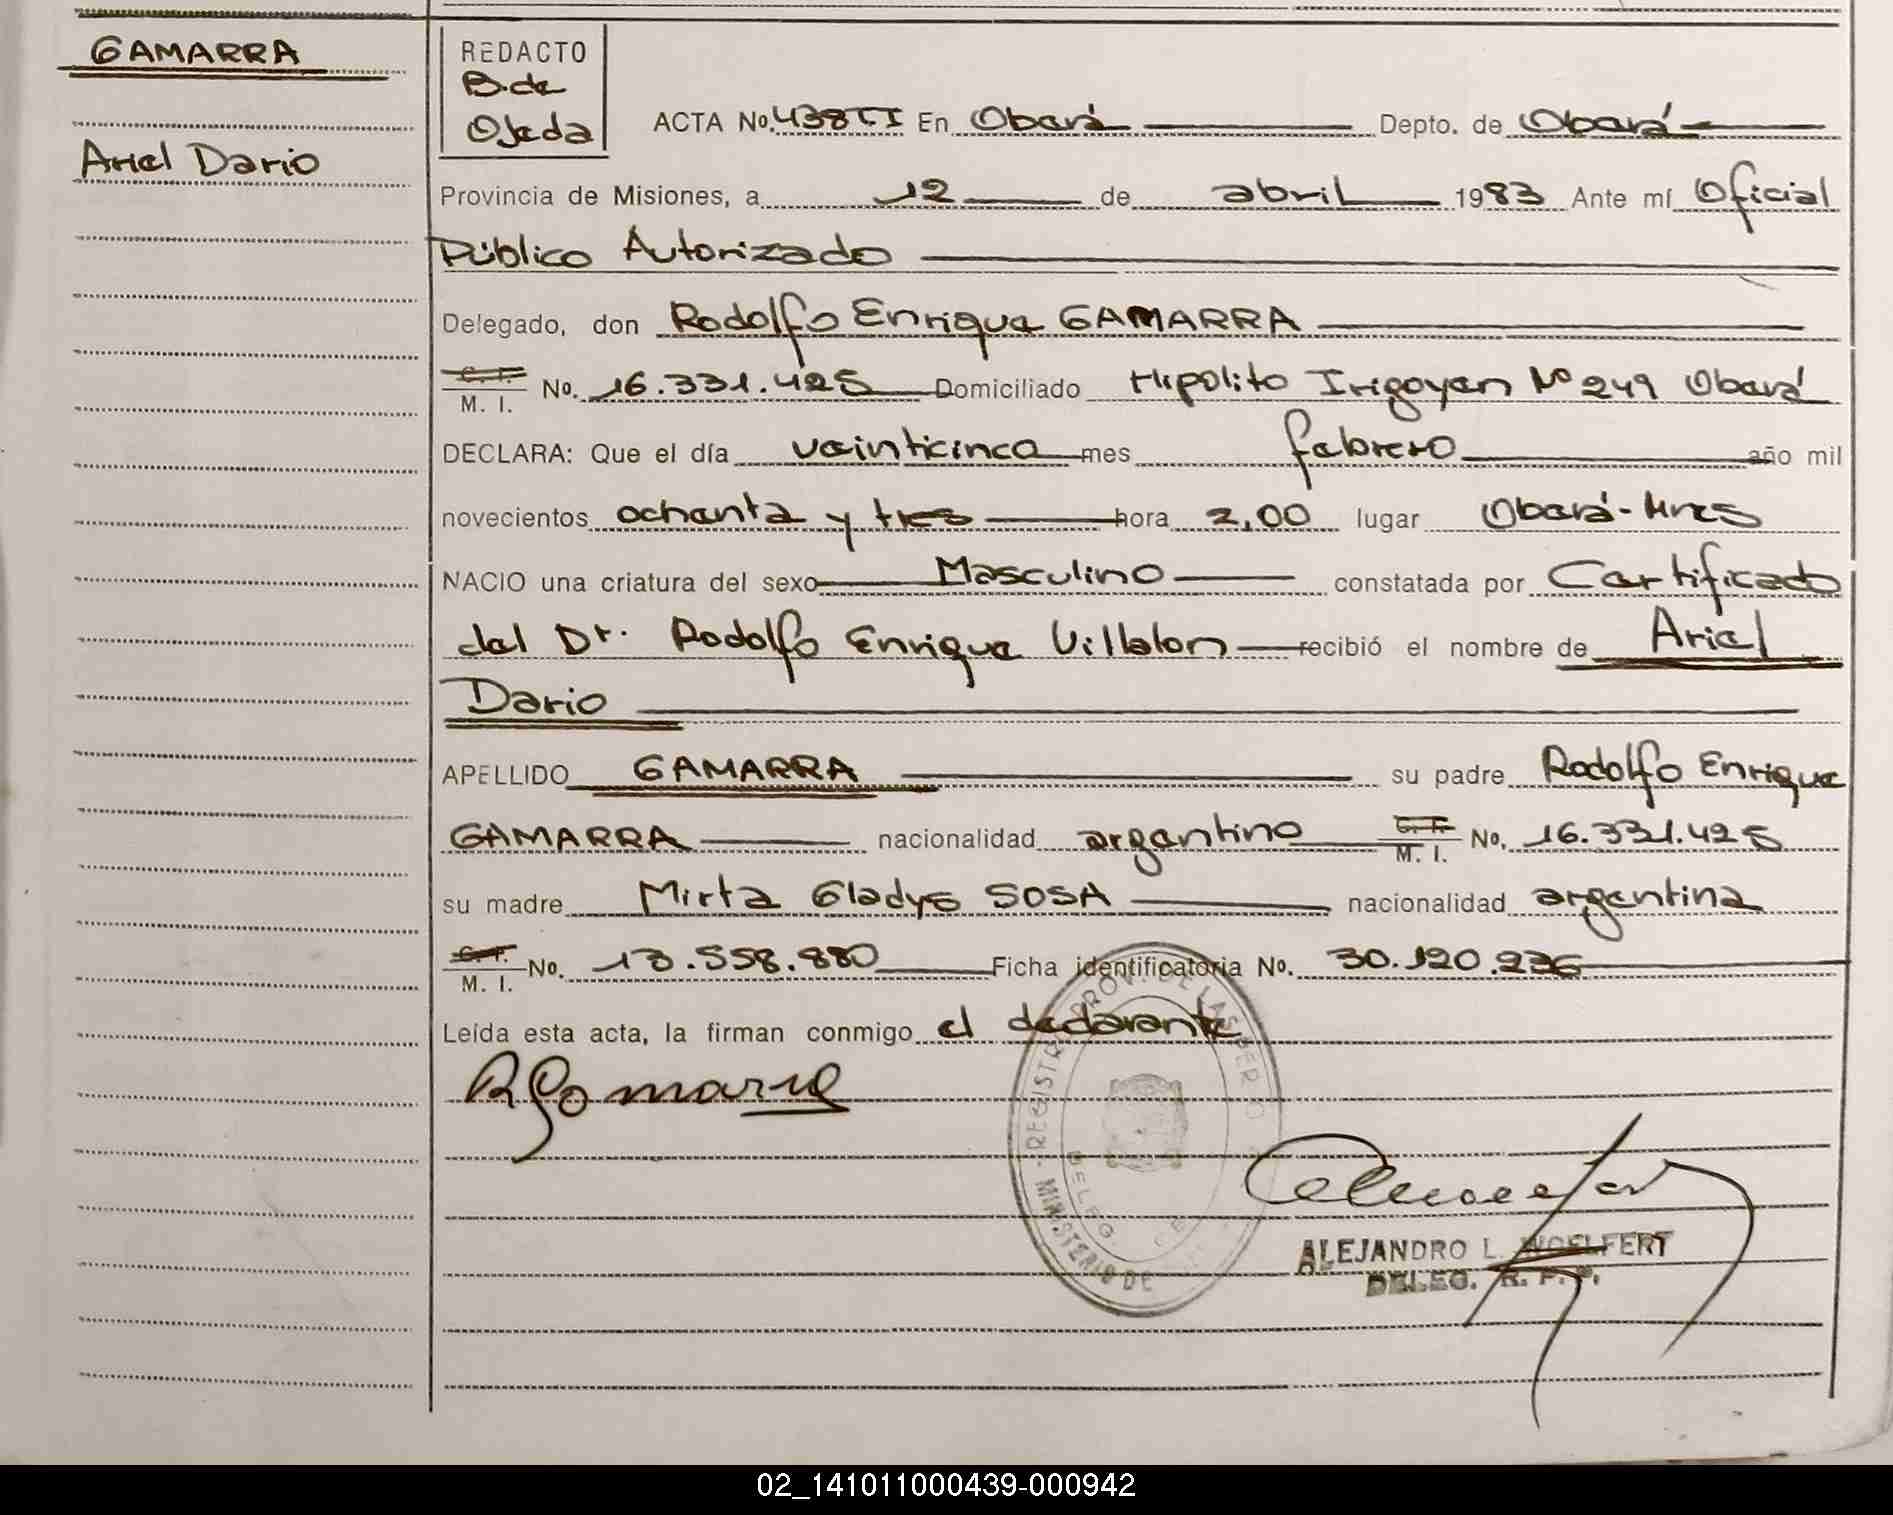 GAMARRA
Ariel Dario
REDACTO
B.de
Ojeda
ACTA No. 438TI En Oberá Depto. de Oberá
Provincia de Misiones, a 12 de abril 1983 Ante mí Oficial
Público Autorizado
Delegado, don Rodolfo Enrique GAMARRA
C. I.
M. I. No. 16.331.425 Domiciliado Hipolito Irigoyen Nº 249 Oberá
DECLARA: Que el día veinticinco mes febrero año mil
novecientos ochenta y tres hora 2,00 lugar Oberá-Mnes
NACIO una criatura del sexo Masculino constatada por Certificado
del Dr. Rodolfo Enrique Villalon recibió el nombre de Ariel
Dario
APELLIDO GAMARRA su padre Rodolfo Enrique
GAMARRA nacionalidad argentino C. I. M. I. No. 16.331.425
su madre Mirta Gladys SOSA nacionalidad argentina
C. I.
M. I. No. 13.558.880 Ficha identificatoria No. 30.120.236
Leída esta acta, la firman conmigo el declarante
RGamarra
REGISTR PROV. DE LAS PER
MINISTERIO DE
DELEG
ALEJANDRO L. WOELFERT
DELEG. R. P. P.
02_141011000439-000942